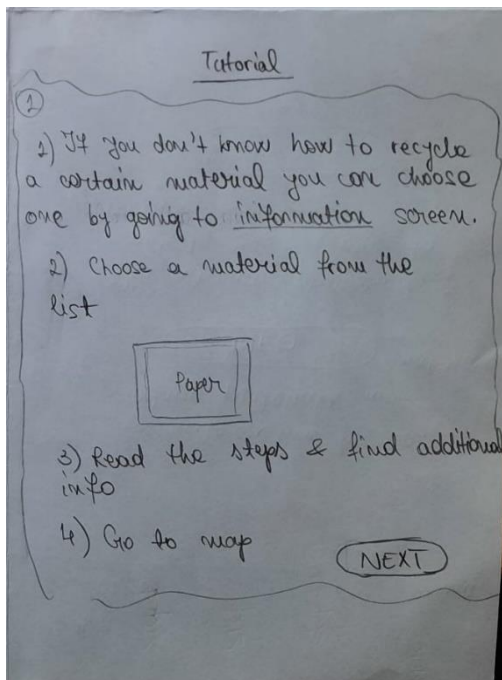 Tutorial
1
1) If you don't know how to recycle
a certain material you can choose
one by going to information screen.
2) Choose a material from the
list
Paper
3) Read the steps & find additional
info
4) Go to map
NEXT